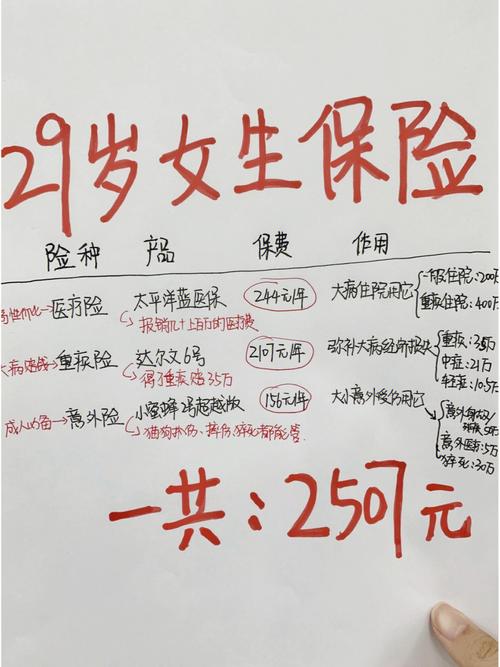 29岁女生保险
险种 产品 保费 作用
医疗险 太平洋蓝医保 244元/年 大病住院用它 一般住院:200万
重疾住院:400万
报销几十上百万的医疗费
大病赔钱 重疾险 达尔文6号 2107元/年 弥补大病经济损失 重疾:35万
中症:21万
轻症:10.5万
得了重疾赔35万
成人必备 意外险 小蜜蜂2号超越版 156元/年 大小意外受伤用它 意外身故/
意外医疗:5万
猝死:30万
猫狗抓伤、摔伤、猝死都能管.
一共:2507元